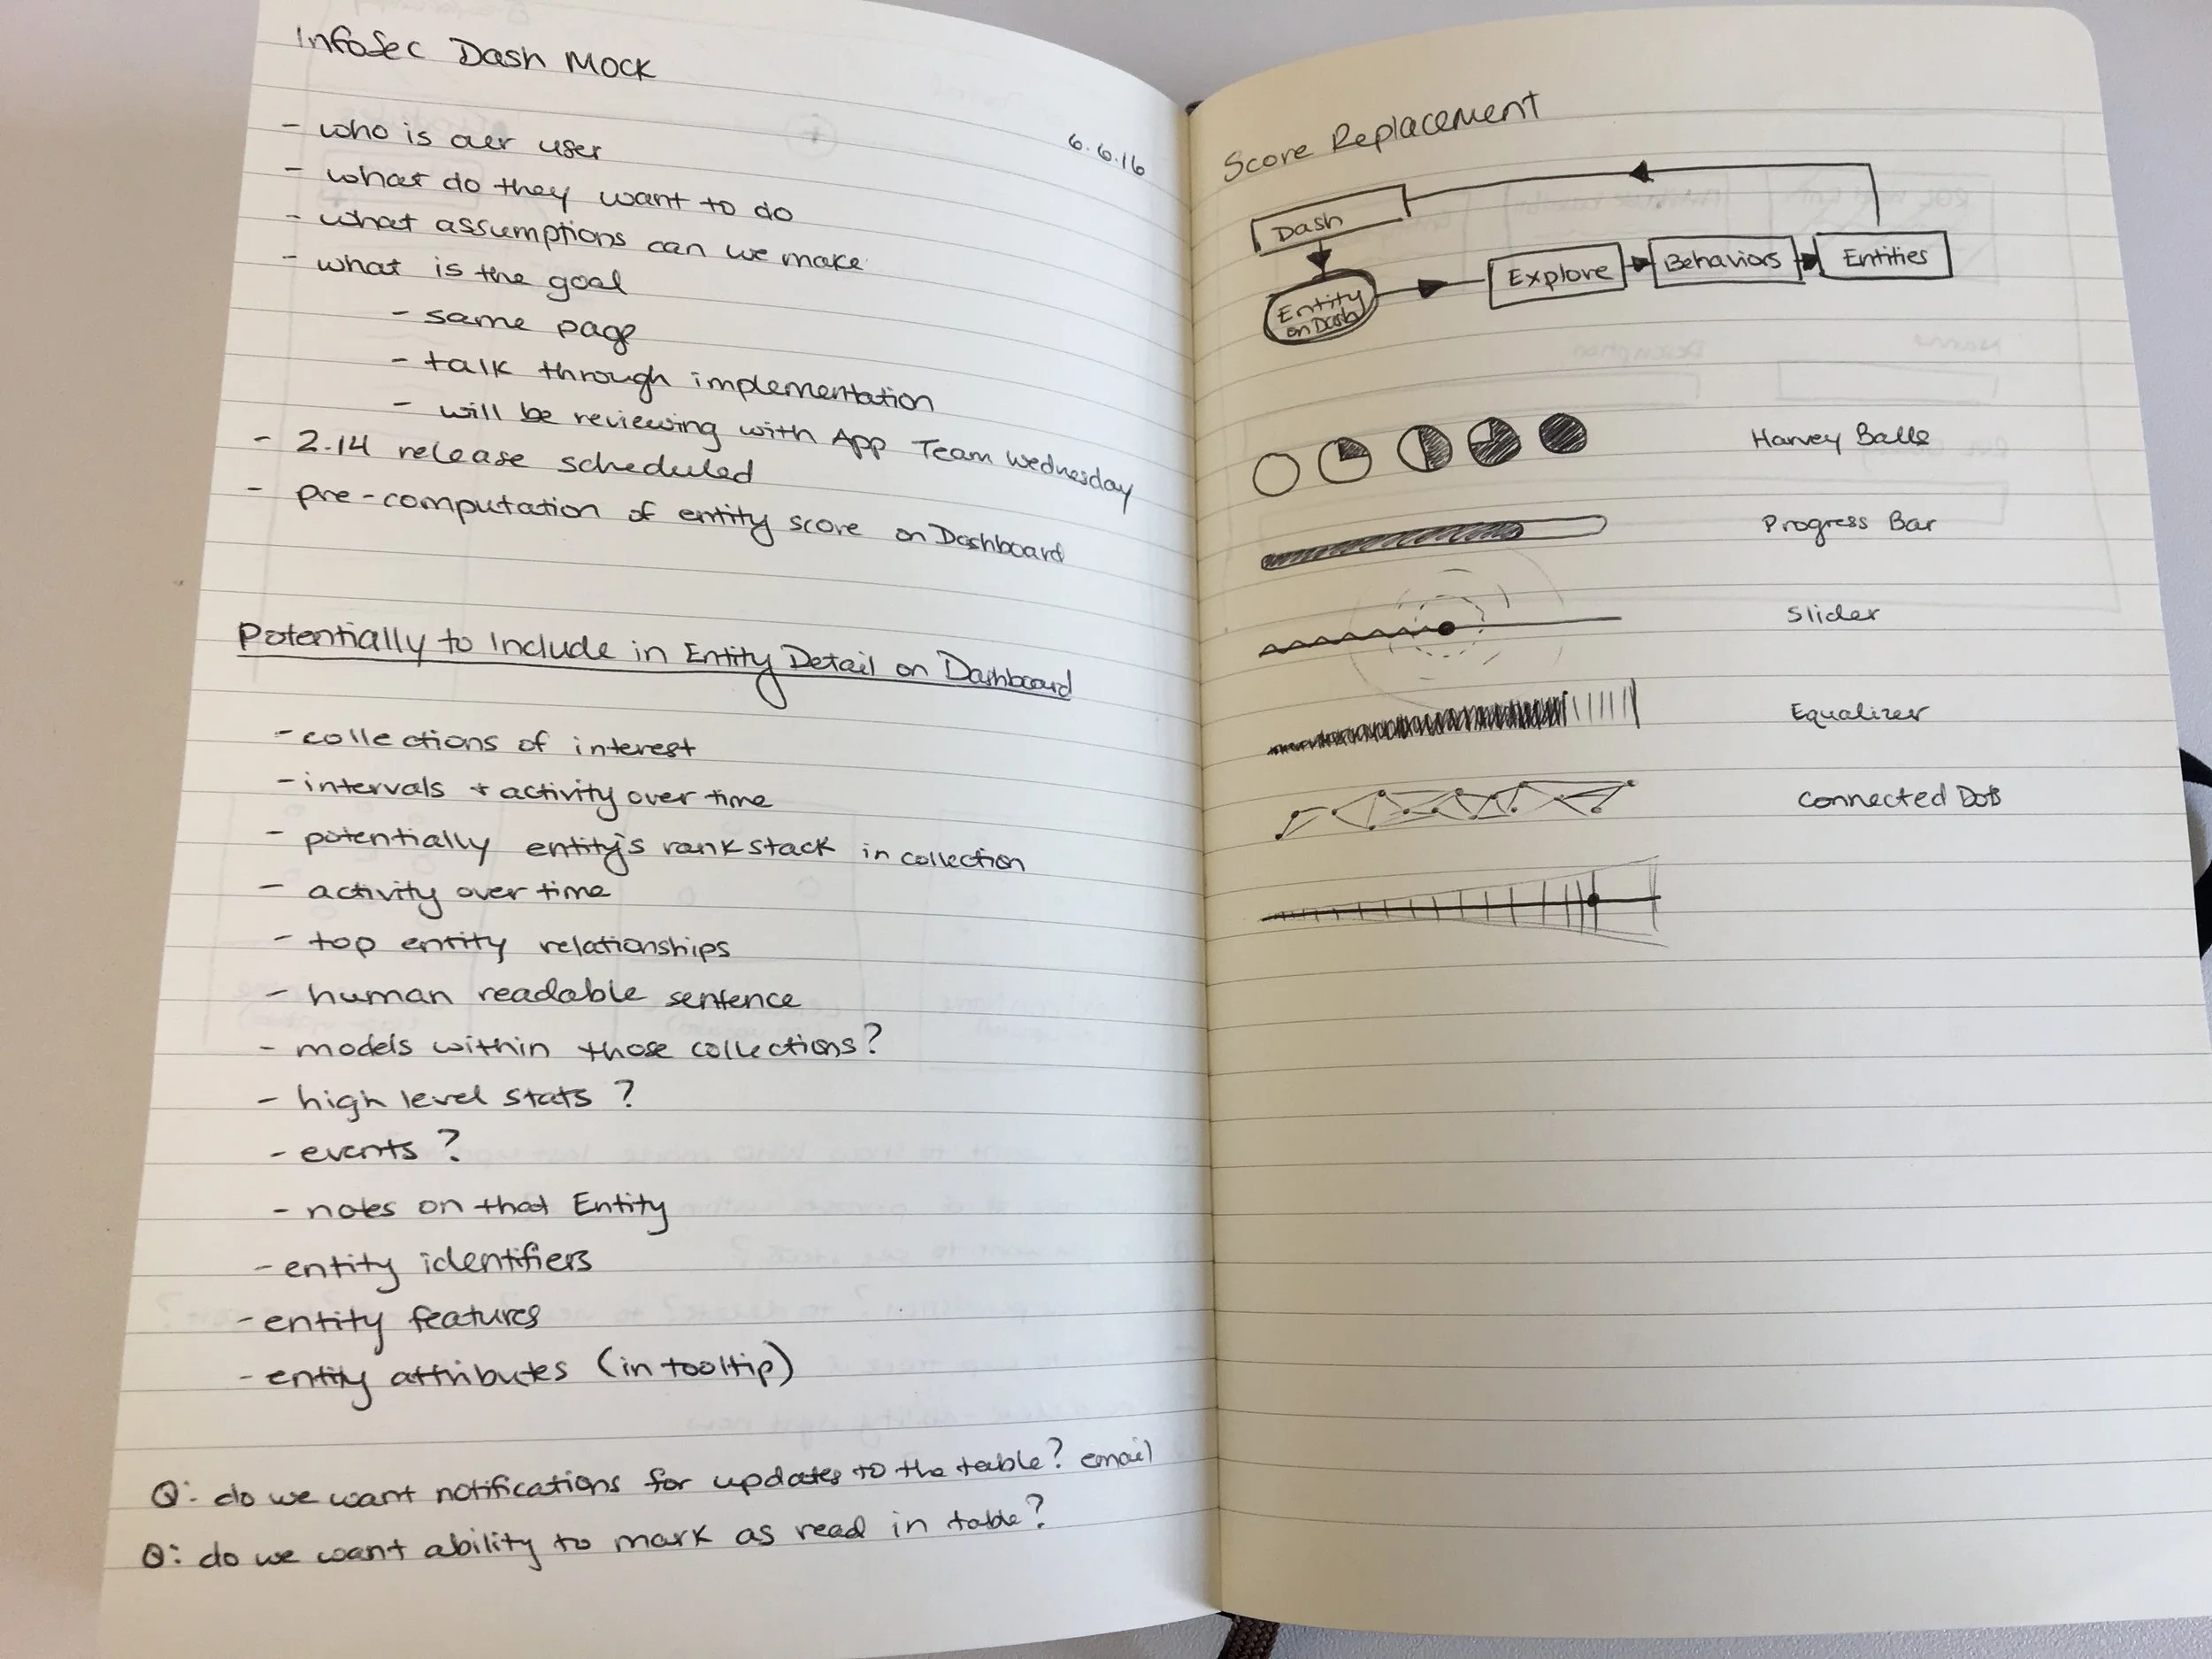 InfoSec Dash Mock
6.6.16
- who is our user
- what do they want to do
- what assumptions can we make
- what is the goal
- same page
- talk through implementation
- will be reviewing with App Team Wednesday
- 2.14 release scheduled
- pre-computation of entity score on Dashboard
Potentially to Include in Entity Detail on Dashboard
- collections of interest
- intervals + activity over time
- potentially entity's rank stack in collection
- activity over time
- top entity relationships
- human readable sentence
- models within those collections?
- high level stats?
- events?
- notes on that Entity
- entity identifiers
- entity features
- entity attributes (in tooltip)
Q: do we want notifications for updates to the table? email
Q: do we want ability to mark as read in table?
Score Replacement
Dash
Entity
on Dash
Explore
Behaviors
Entities
Harvey Balls
Progress Bar
Slider
Equalizer
Connected Dots